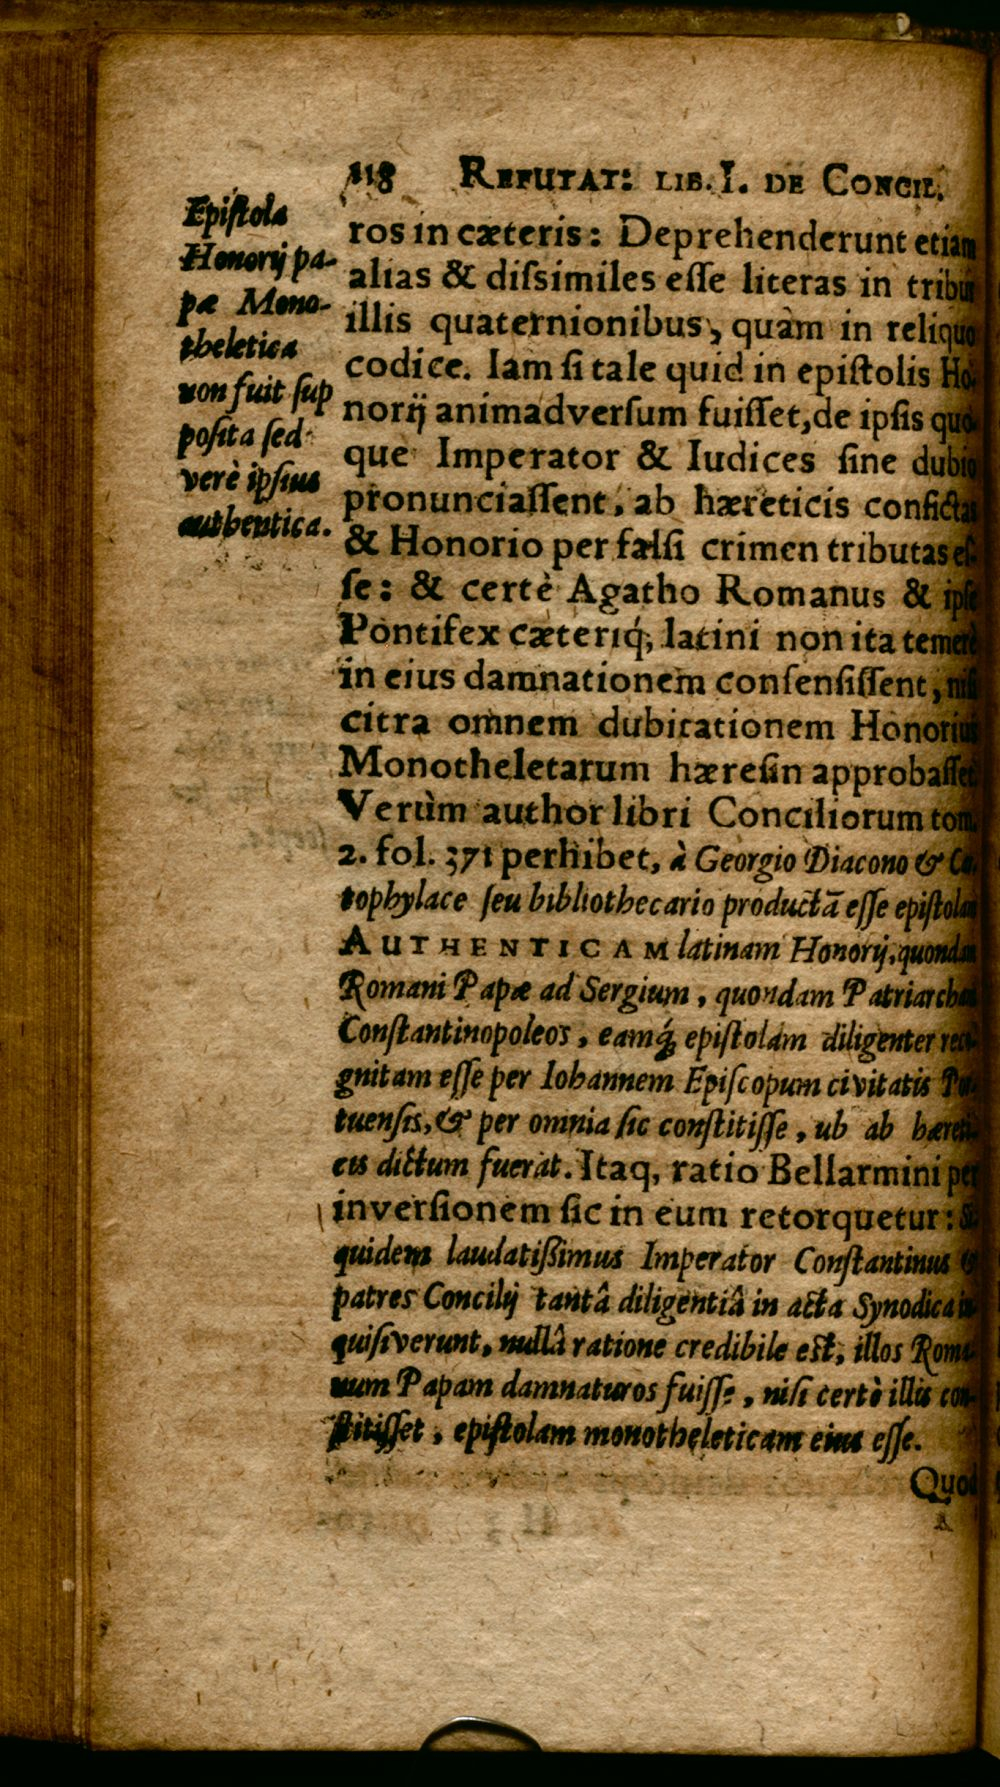 118 REFUTAT: LIB. I. DE CONCIL.
Epiſtola
Honorij pa-
pæ Mono-
theletica
non fuit ſup
poſita ſed
verè ipſius
authentica.
ros in cæteris: Deprehenderunt etiam
alias & diſsimiles eſſe literas in tribus
illis quaternionibus, quàm in reliquo
codice. Iam ſi tale quid in epiſtolis Ho-
norij animadverſum fuiſſet, de ipſis quo-
que Imperator & Iudices ſine dubio
pronunciaſſent, ab hæreticis confictas
& Honorio per falſi crimen tributas eſ-
ſe: & certè Agatho Romanus & ipſe
Pontifex cæteriq́; latini non ita temerè
in eius damnationem conſenſiſſent, niſi
citra omnem dubitationem Honorius
Monotheletarum hæreſin approbaſſet
Verùm author libri Conciliorum tom.
2. fol. 371 perhibet, à Georgio Diacono & Ca-
tophylace ſeu bibliothecario productā eſſe epiſtolam
AUTHENTICAM latinam Honorij, quondam
Romani Papæ ad Sergium, quondam Patriarcham
Conſtantinopoleos, eamq́; epiſtolam diligenter reco-
gnitam eſſe per Iohannem Epiſcopum civitatis Por-
tuenſis, & per omnia ſic conſtitiſſe, ub ab hæreti-
cis dictum fuerat. Itaq, ratio Bellarmini per
inverſionem ſic in eum retorquetur: Si-
quidem laudatiſsimus Imperator Conſtantinus &
patres Concilij tantâ diligentiâ in acta Synodica in-
quiſiverunt, nullâ ratione credibile eſt, illos Roma-
num Papam damnaturos fuiſſe, niſi certò illis con-
ſtitiſſet, epiſtolam monotheleticam eius eſſe.
Quod